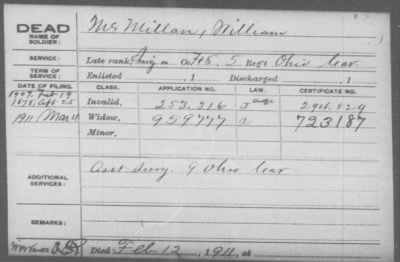 DEAD
NAME OF SOLDIER: Mc Millan, William
SERVICE: Late rank Co. F&S, 5 Reg't Ohio Cav.
TERM OF SERVICE: Enlisted , 1 Discharged , 1
DATE OF FILING. CLASS. APPLICATION NO. LAW. CERTIFICATE NO.
1907, Feb 19
1878, Apr 25 Invalid. 253.316 J
1911 Mar 4 Widow. 959777 a 723187
Minor.
ADDITIONAL SERVICES: Asst Surg. 9 Ohio Cav
REMARKS:
Died Feb 12, 1911, at